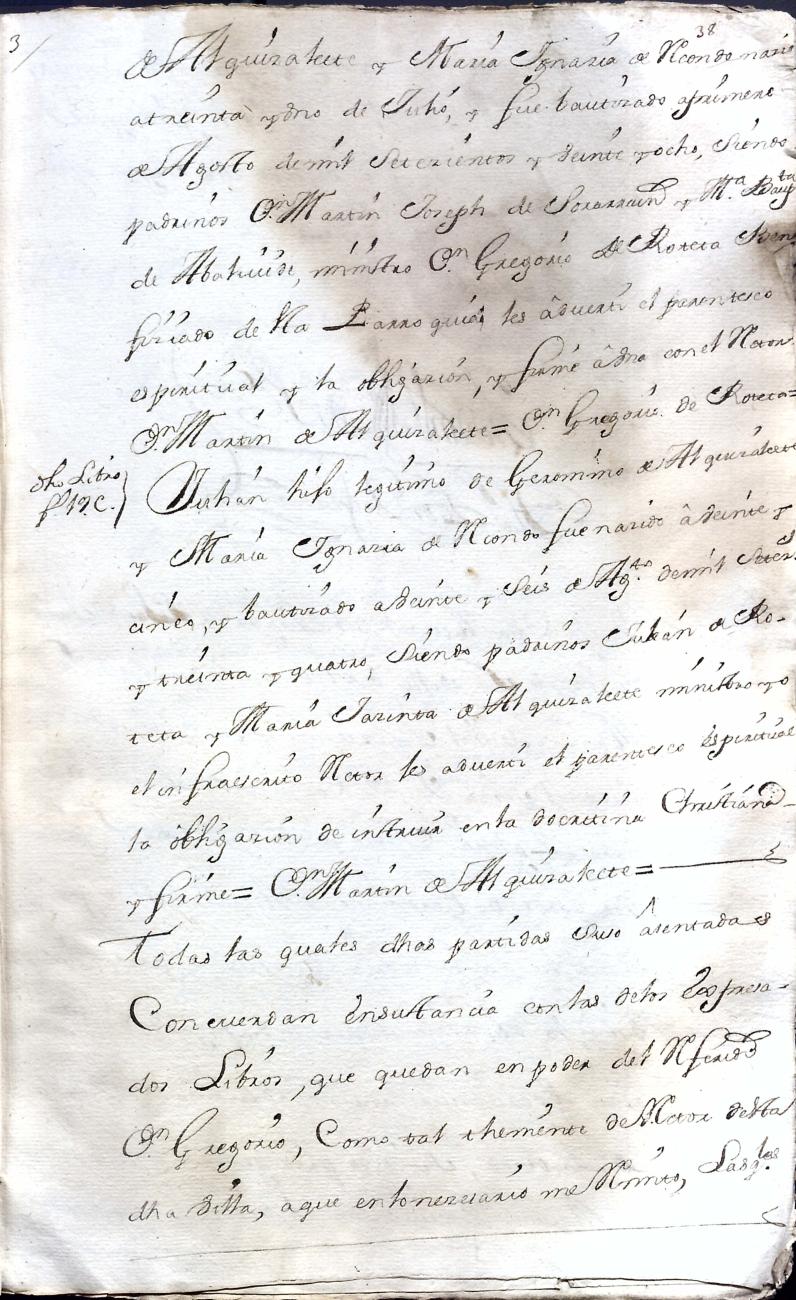 3/
38
de Alquizalecte y Maria Ygnazia de Recondo nazio
a treinta y Vno de Julio, y fue bautizado a primero
de Agosto de mil Setezientos y veinte y ocho, Siendo
padrinos Dn. Martin Joseph de Sorarrain y Ma. Baupta
de Abalivide, ministro Dn. Gregorio de Roteta Bene
fiziado de dha Parroquia, les adverti el parentesco
espiritual y la obligazion, y firmé a Vna con el Retor
Dn. Martin de Alquizalete = Dn. Gregorio de Roteta =
dho Libro
fo 19. C.
Julian hijo legitimo de Geronimo de Alquizalete
y Maria Ygnazia de Recondo fue nazido a veinte y
cinco, y bautizado a veinte y Seis de Agto. de mil Setezs.
y treinta y quatro, Siendo padrinos Julian de Ro-
teta y Maria Jazinta de Alquizalete ministro yo
el infraescrito Retor les adverti el parentesco espiritual
la obligazion de instruir en la doctrina Christiana
y firme = Dn. Martin de Alquizalete =
Todas las quales dhas partidas Suso asentadas
Concuerdan en sustancia con las de los Expresa-
dos Libros, que quedan en poder del Referido
Dn. Gregorio, Como tal theniente de Retor de dha
dha Villa, a que en lo nezesario me Remito, Las qles